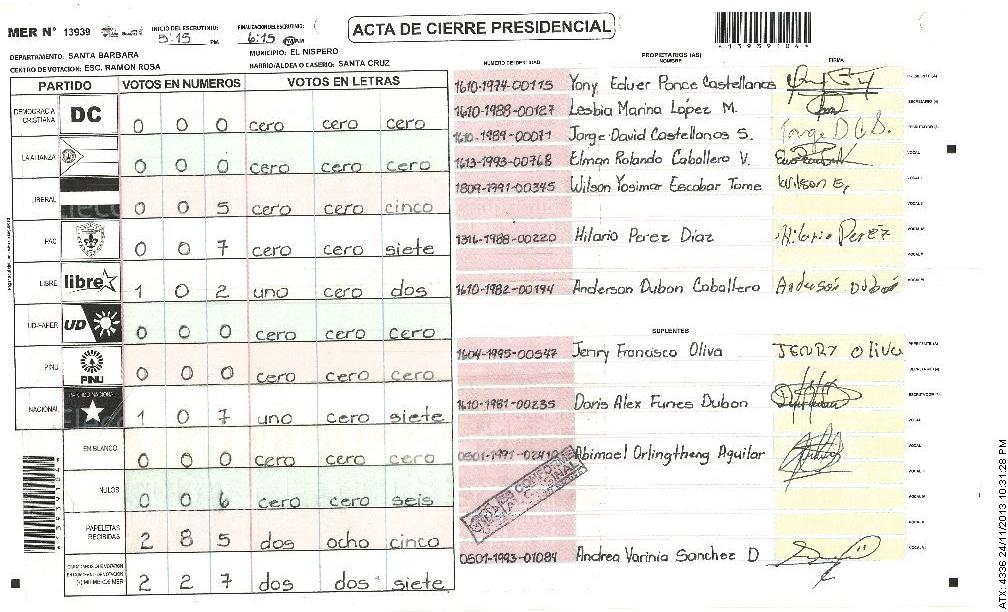 MER N° 13939
INICIO DEL ESCRUTINIO:
5:15 PM
FINALIZACION ESCRUTINIO:
6:15 PM
ACTA DE CIERRE PRESIDENCIAL
DEPARTAMENTO: SANTA BARBARA
MUNICIPIO: EL NISPERO
CENTRO DE VOTACION: ESC. RAMON ROSA
BARRIO/ALDEA O CASERIO: SANTA CRUZ
PARTIDO VOTOS EN NUMEROS VOTOS EN LETRAS
DEMOCRACIA CRISTIANA DC 0 0 0 cero cero cero
LA ALIANZA 0 0 0 cero cero cero
LIBERAL 0 0 5 cero cero cinco
PAC 0 0 7 cero cero siete
LIBRE libre 1 0 2 uno cero dos
UD-FAPER UD 0 0 0 cero cero cero
PINU PINU 0 0 0 cero cero cero
NACIONAL 1 0 7 uno cero siete
EN BLANCO 0 0 0 cero cero cero
NULOS 0 0 6 cero cero seis
PAPELETAS RECIBIDAS 2 8 5 dos ocho cinco
2 2 7 dos dos siete
NUMERO DE IDENTIDAD
PROPIETARIOS (AS)
NOMBRE
FIRMA
1610-1974-00115 Yony Eduer Ponce Castellanos
1610-1988-00127 Lesbia Marina López M.
1610-1989-00071 Jorge David Castellanos S. Jorge D C S.
1613-1993-00768 Elman Rolando Caballero V.
1809-1991-00345 Wilson Yosimar Escobar Tome Wilson E,
1316-1988-00220 Hilario Perez Diaz Hilario Perez
1610-1982-00194 Anderson Dubon Caballero Anderson Dubon
SUPLENTES
1604-1995-00547 Jenry Francisco Oliva JENRY Oliva
1610-1981-00235 Doris Alex Funes Dubon
0501-1991-02410 Abimael Orlingtheng Aguilar
0501-1993-01084 Andrea Varinia Sanchez D
ATX: 4336 24/11/2013 10:31:28 PM